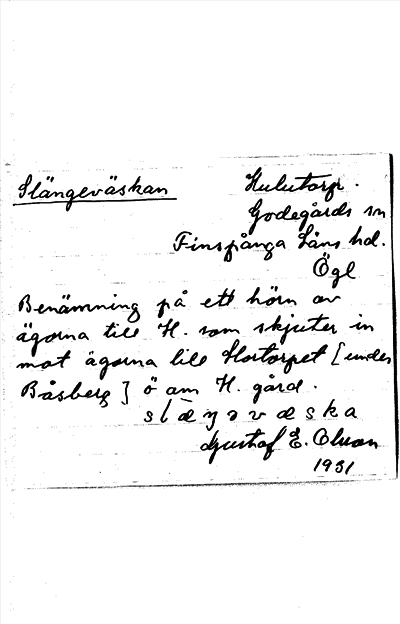 Slängeväskan
Hulutorp.
Godegårds sn
Finspånga Läns hd.
Ögl
Benämning på ett hörn av
ägorna till H. som skjuter in
mot ägorna till Stortorpet [under
Båsberg] ö om H. gård.
slæŋəvæska
Gustaf E. Olson
1931